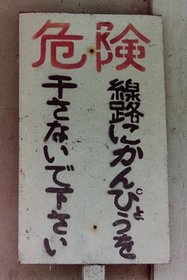 危険
線路にかんぴょうを
干さないで下さい